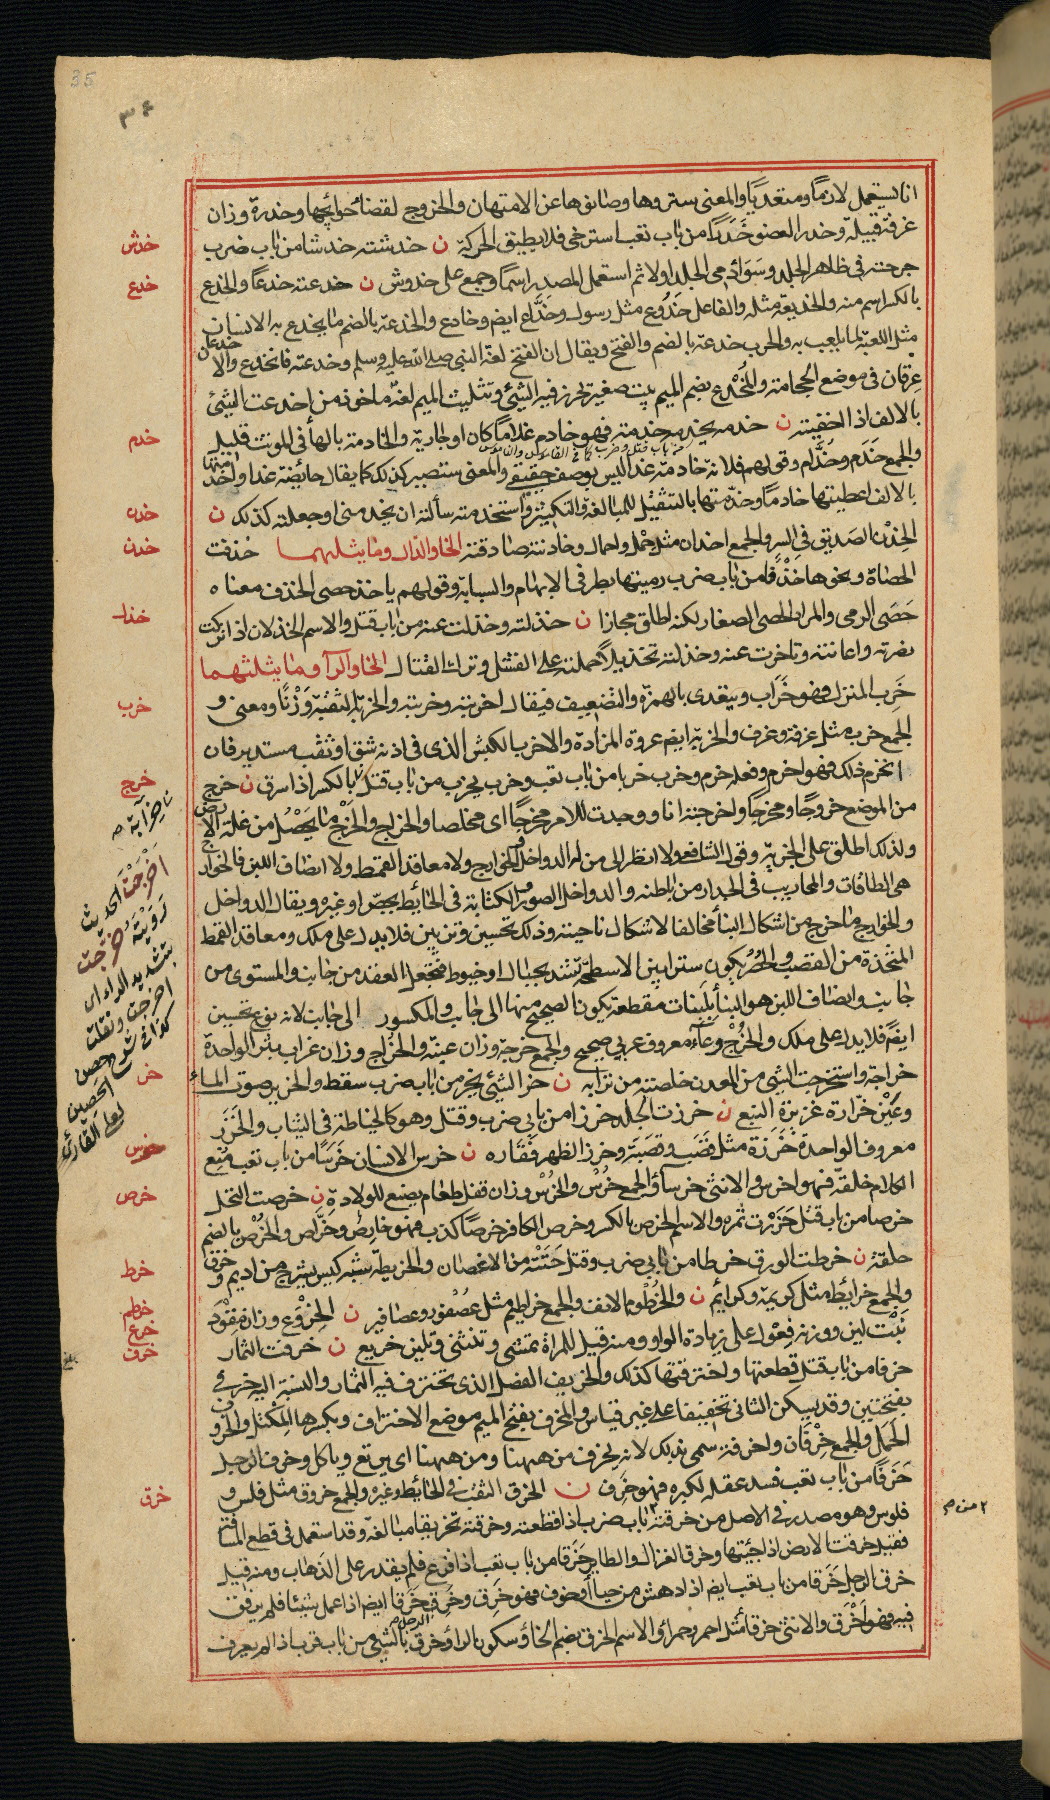 35
٣٤
انا يستعمل لازما ومتعديا والمعنى ستروها وصانوها عن الامتهان والخروج لقضاء حوائجها وخدرة وزان
غرفة قبيلة وخدر العضو خدرا من باب تعب استرخى فلا يطيق الحركة ن خدشته خدشا من باب ضرب
جرحته فى ظاهر الجلد وسواء دمى الجلد اولا ثم استعمل المصدر اسما وجمع على خدوش ن خدعته خدعا والخدع
بالكسر اسم منه والخديعة مثله والفاعل خدوع مثل رسول وخداع ايضم وخادع والخدعة بالضم ما يخدع به الانسان
مثل اللعبة لما يلعب به والحرب خدعة بالضم والفتح ويقال ان الفتح لغة النبى صلى الله عليه وسلم وخدعته فانخدع والا خدعان
عرقان فى موضع الحجامة والمخدع بضم الميم بيت صغير يحرز فيه الشئ وتثليث الميم لغة ماخوذ من اخدعت الشئ
بالالف اذا اخفيته ن خدمه يخدمه خدمة فهو خادم غلاما كان او جارية والخادمة بالهاء فى المونث قليل
والجمع خدم وخدام وقولهم فلانة خادمة غدا ليس بوصف حقيقى والمعنى ستصير كذلك كما يقال حائضة غدا واخدمتها
بالالف اعطيتها خادما وخدمتها بالتثقيل للمبالغة والتكثير واستخدمته سألته ان يخدمنى او جعلته كذلك ن
الخدن الصديق فى السر والجمع اخدان مثل حمل واحمال وخادنته صادقته الخاء والذال وما يثلثهما خذفت
الحصاة ونحوها خذفا من باب ضرب رميتها بطرفى الابهام والسبابة وقولهم ياخذ حصى الخذف معناه
حصى الرمى والمراد الحصى الصغار لكنه اطلق مجازا ن خذلته وخذلت عنه من باب قتل والاسم الخذلان اذا تركت
نصرته واعانته وتاخرت عنه وخذلته تخذيلا حملته على الفشل وترك القتال الخاء والراء وما يثلثهما
خرب المنزل فهو خراب ويتعدى بالهمزة والتضعيف فيقال اخربته وخربته والخربة الثقبة وزنا ومعنى و
الجمع خرب مثل غرفة وغرف والخربة ايضم عروة المزادة والاخرب الكبش الذى فى اذنه شق او ثقب مستدير فان
انخرم ذلك فهو اخرم وفعله خرم وخرب خربا من باب تعب وخرب يخرب من باب قتل بالكسر اذا سرق ن خرج
من الموضع خروجا ومخرجا واخرجته انا ووجدت للامر مخرجا اى مخلصا والخراج والخرج ما يحصل من غلة الارض
ولذلك اطلق على الجزية وقول الشافعى ولا انظر الى من له الدواخل والخوارج ولا معاقد القمط ولا انصاف اللبن فالخوارج
هى الطاقات والمحاريب فى الجدار من باطنه والدواخل الصور والكتابة فى الحائط بجص او غيره ويقال الدواخل
والخوارج ما خرج من اشكال البناء مخالفا لاشكال ناحيته وذلك تحسين وتزيين فلا يدل على ملك ومعاقد القمط
المتخذة من القصب والحصر يكون سترا بين الاسطحة تشد بحبال او خيوط فتجعل العقد من جانب والمستوى من
جانب وانصاف اللبن هو البناء بلبنات مقطعة يكون الصحيح منها الى جانب والمكسور الى جانب لانه نوع تحسين
ايضا فلا يدل على ملك والخرج وعاء معروف عربى صحيح والجمع خرجة وزان عنبة والخراج وزان غراب بثر الواحدة
خراجة واستخرجت الشئ من المعدن خلصته من ترابه ن خر الشئ يخر من باب ضرب سقط والخرير صوت الماء
وعين خرارة غزيرة النبع ن خرزت الجلد خرزا من بابى ضرب وقتل وهو كالخياطة فى الثياب والخرز
معروف الواحدة خرزة مثل قصب وقصبة وخرز الظهر فقاره ن خرس الانسان خرسا من باب تعب منع
الكلام خلقة فهو اخرس والانثى خرساء والجمع خرس والخرس وزان قفل طعام يصنع للولادة ن خرصت النخل
خرصا من باب قتل حزرت ثمره والاسم الخرص بالكسر وخرص الكافر خرصا كذب فهو خارص وخراص والخرص بالضم
حلقة ن خرطت الورق خرطا من بابى ضرب وقتل حتته من الاغصان والخريطة شبه كيس يشرج من اديم وخرق
والجمع خرائط مثل كريمة وكرائم ن والخرطوم الانف والجمع خراطيم مثل عصفور وعصافير ن الخروع وزان مقود
نبت لين ووزنه فعول على زيادة الواو ومنه قيل للمراة تمشى وتتثنى وتلين خريع ن خرفت الثمار
خرفا من باب قتل قطعتها واخترفتها كذلك والخريف الفصل الذى تخترف فيه الثمار والنسبة اليه خرفى
بفتحتين وقد يسكن الثانى تخفيفا على غير قياس والمخرف بفتح الميم موضع الاختراف وبكسرها المكتل والخروف
الحمل والجمع خرفان واخرفة سمى بذلك لانه يخرف من ههنا ومن ههنا اى يرتع وياكل وخرف الرجل
خرفا من باب تعب فسد عقله لكبره فهو خرف ن الخرق الثقب فى الحائط وغيره والجمع خروق مثل فلس و
فلوس وهو مصدر فى الاصل من خرقته باب ضرب اذا قطعته وخرقته تخريقا مبالغة وقد استعمل فى قطع المسافة
فقيل خرقت الارض اذا جبتها وخرق الغزال والطاير خرقا من باب تعب اذا فزع فلم يقدر على الذهاب ومنه قيل
خرق الرجل خرقا من باب تعب ايضم اذا دهش من حياء او خوف فهو خرق وخرق خرقا ايضم اذا عمل شيئا فلم يرفق
فيه فهو اخرق والانثى خرقاء مثل احمر وحمراء والاسم الخرق بضم الخاء وسكون الراء وخرق بالشئ من باب قرب اذا لم يعرف
خدش
خدع
خدم
خدن
خدن
خذل
خرب
خرج
اخرجت الحديث
رويته خرجت
بتشديد الراء اى
اخرجت ونقلت
كذا فى شرح حصن
الحصين
لعلى القارى
خر
خرس
خرص
خرط
خرطم
خرع
خرف
خرق
٢ من ص